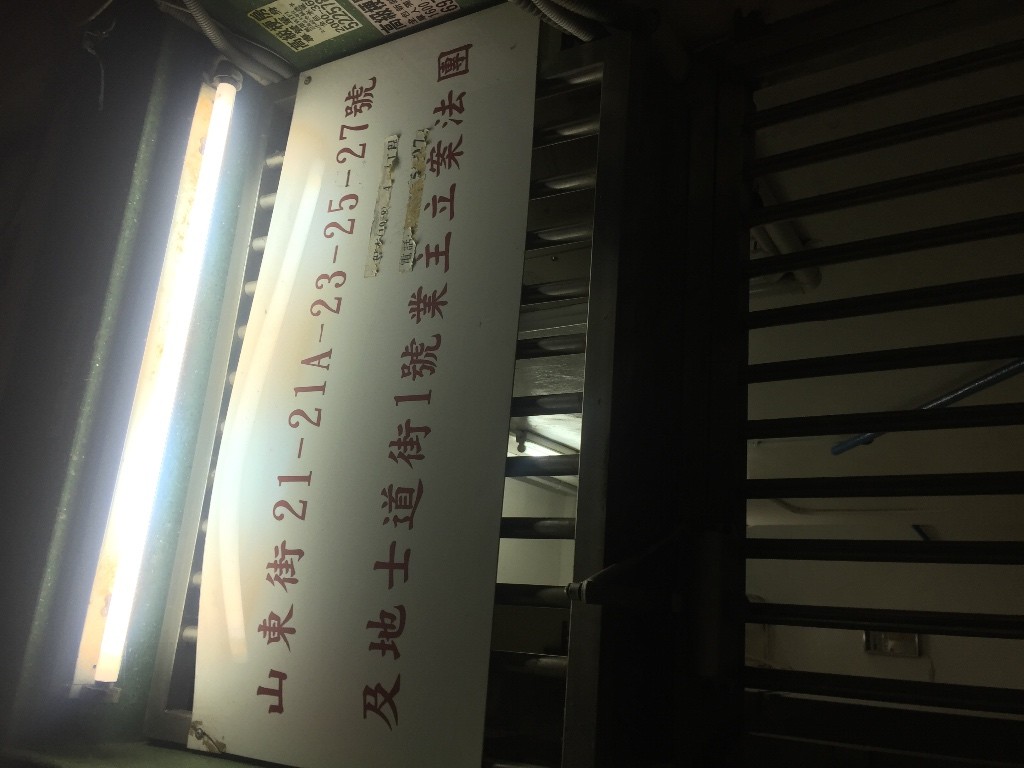 山東街21-21A-23-25-27號
及地士道街1號業主立案法團